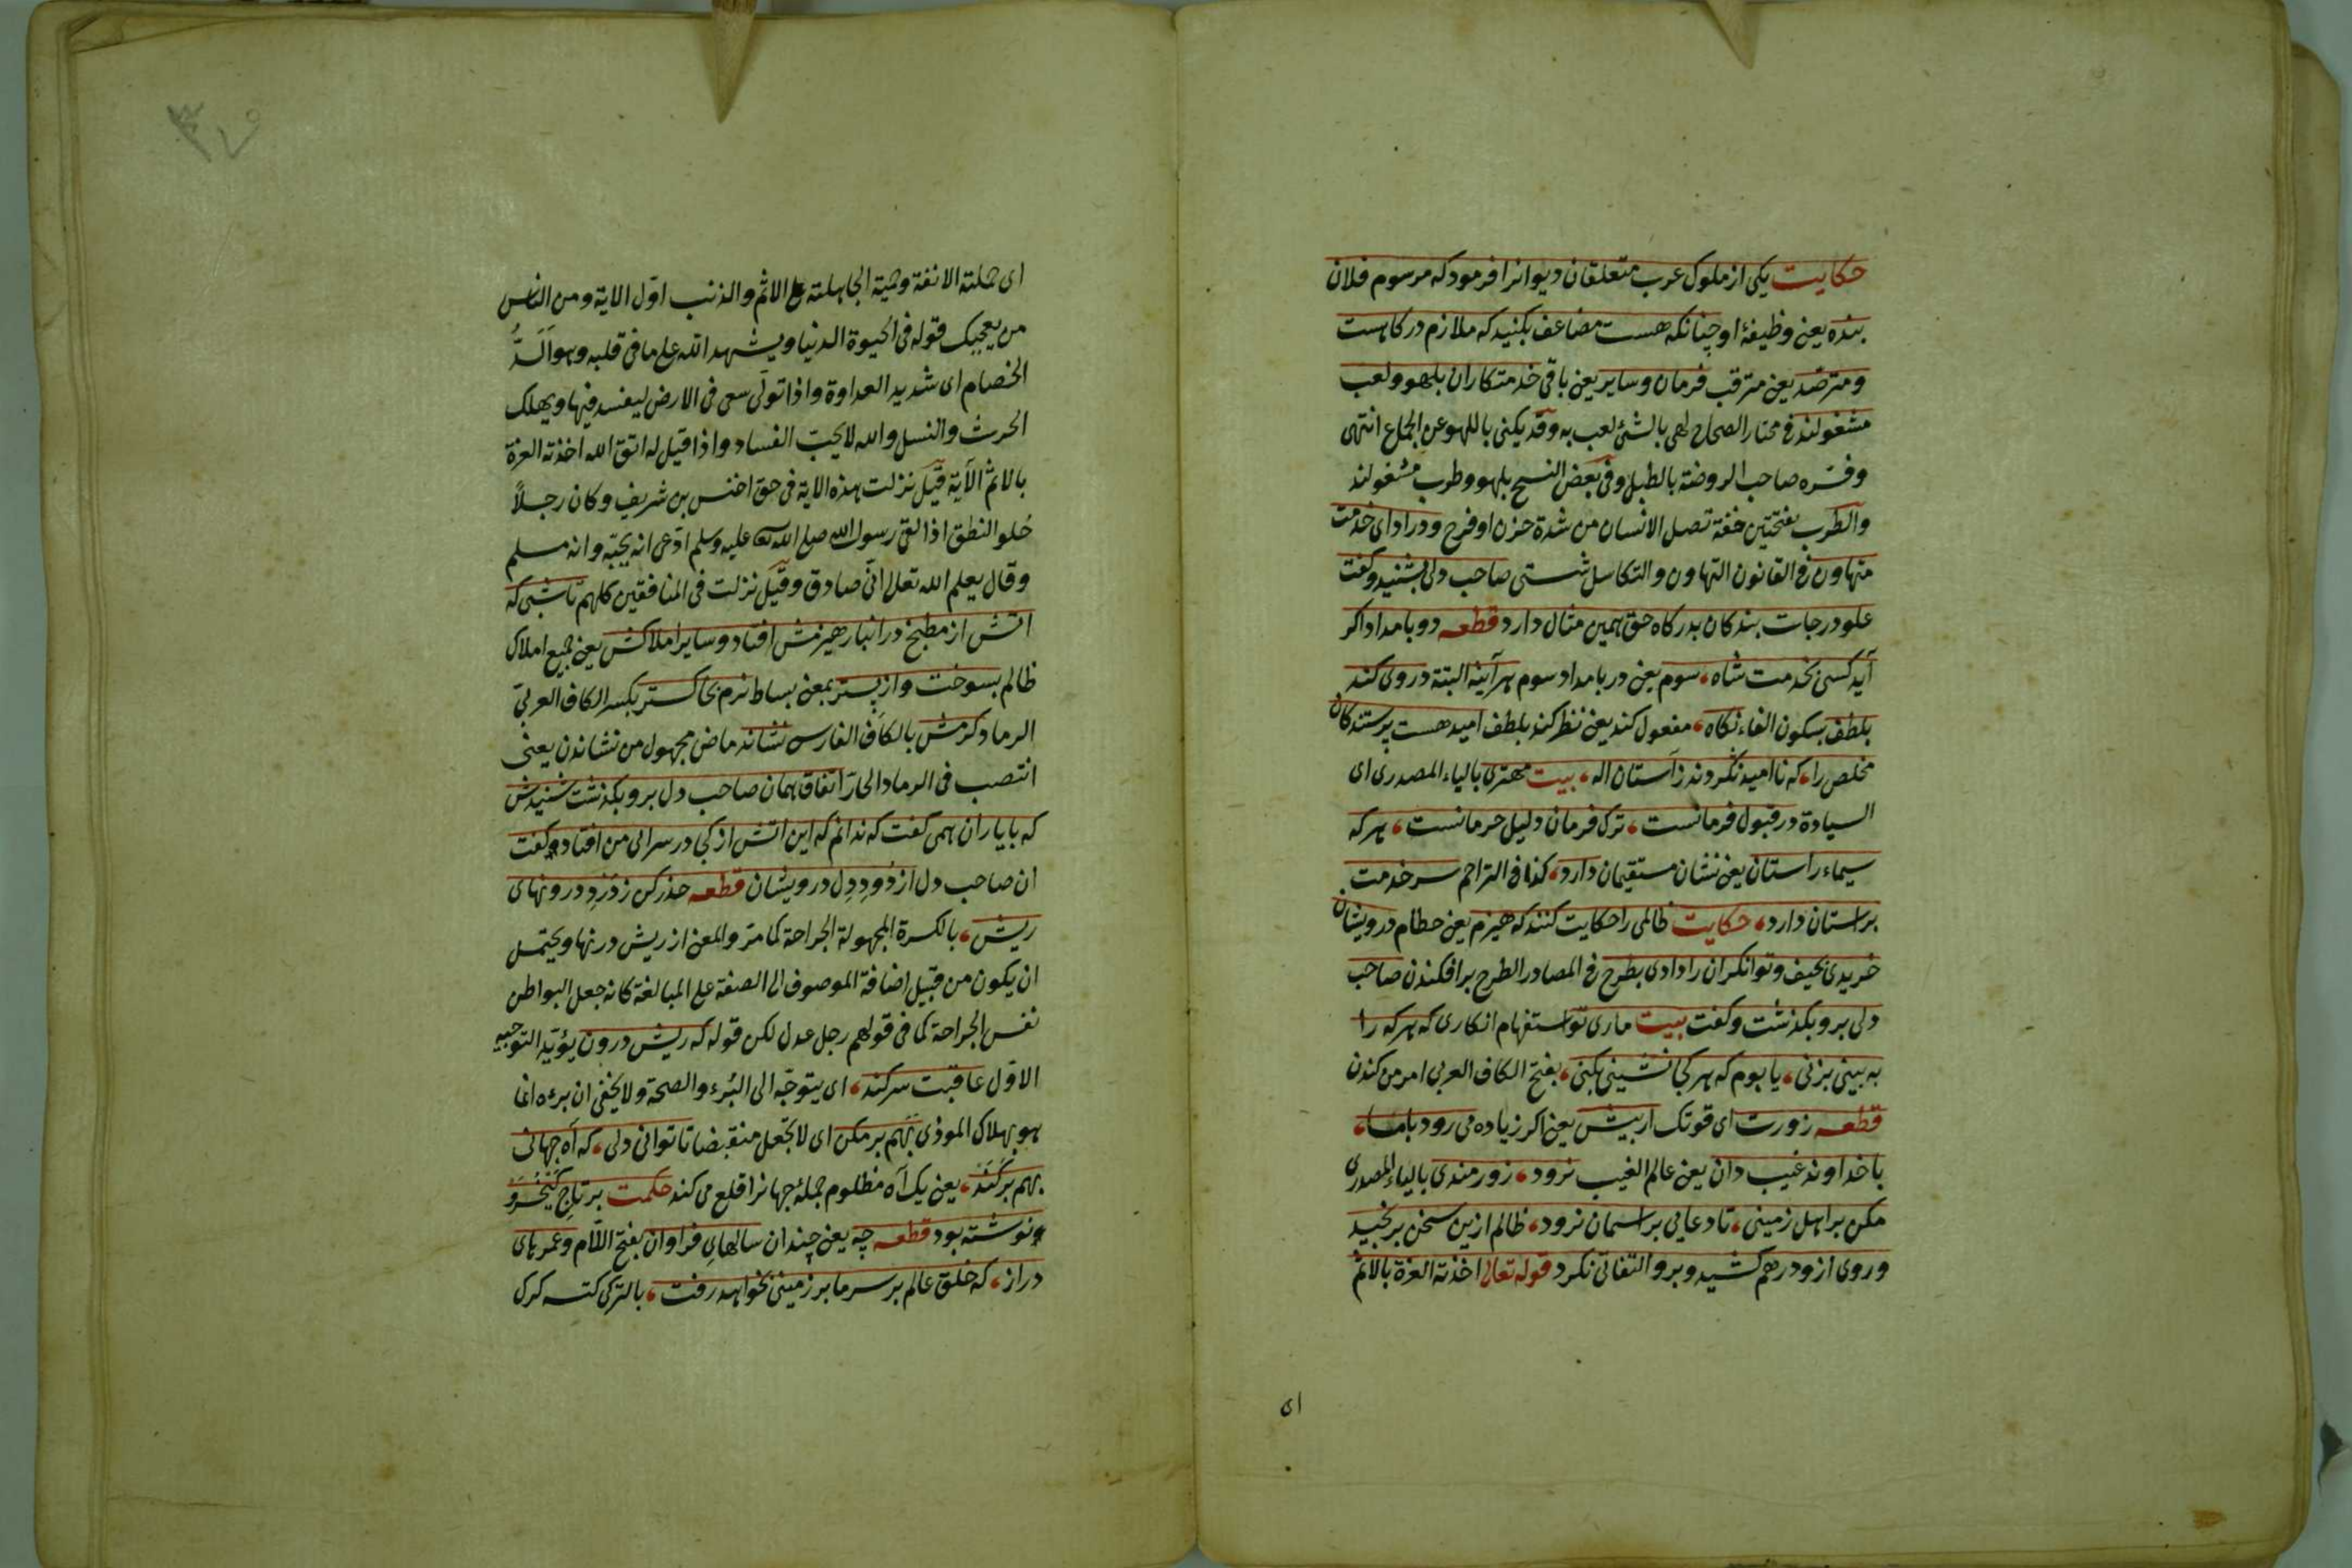 حکایت یکی از ملوک عرب متعلقان دیوانرا فرمود که مرسوم فلان
بنده یعنی وظیفهٔ او چنانکه هست مضاعف بکنید که ملازم درکاهست
ومترصّد یعنی مترقب فرمان وسایر یعنی باقی خدمتکاران بلهو ولعب
مشغولند فی مختار الصحاح لهی بالشئ لعب به وقد یکنی باللهو عن الجماع انتهی
وفسّره صاحب الروضة بالطبل وفی بعض النسخ بلهو وطرب مشغولند
والطرب بفتحتین خفة تصل الانسان من شدة حزن او فرح ودر ادای خدمت
متهاون فی القانون التهاون والتکاسل سستی صاحب دلی بشنید وکفت
علو درجات بندکان بدرکاه حق همین مثال دارد قطعه دو بامداد اکر
آید کسی بخدمت شاه، سوم یعنی در بامداد سوم هر آینه البتة در وی کند
بلطف بسکون الفاء نکاه، مفعول کند یعنی نظر کند بلطف امید هست پرستندکان
مخلص را، که ناامید نکردند زآستان اله، بیت مهتری بالیاء المصدری ای
السیادة در قبول فرمانست، ترک فرمان دلیل حرمانست، هر که
سیماء راستان یعنی نشان مستقیمان دارد، کذا فی التراجم سر خدمت
براستان دارد، حکایت ظالمی را حکایت کنند که هیزم یعنی حطام درویشان
خریدی بحیف وتوانکران را دادی بطرح فی المصادر الطرح برافکندن صاحب
دلی برو بکذشت وکفت بیت ماری تو استفهام انکاری که هر که را
به بینی بزنی، یا بوم که هر کجا نشینی بکنی، بفتح الکاف العربی امر من کندن
قطعه زورت ای قوتک ار پیش یعنی اکر زیاده می رود باما،
با خداوند غیب دان یعنی عالم الغیب نرود، زورمندی بالیاء المصدری
مکن بر اهل زمینی، تا دعایی بر اسمان نرود، ظالم ازین سخن برنجید
وروی ازو درهم کشید وبرو التفاتی نکرد قوله تعالی اخذته العزة بالاثم
ای
ای حملته الانفة وحمیة الجاهلیة علی الاثم والذنب اوّل الایة ومن الناس
من یعجبک قوله فی الحیوة الدنیا ویشهد الله علی ما فی قلبه وهو الدُّ
الخصام ای شدید العداوة واذا تولّی سعی فی الارض لیفسد فیها ویهلک
الحرث والنسل والله لا یحبّ الفساد واذا قیل له اتق الله اخذته العزة
بالاثم الآیة قیل نزلت هذه الایة فی حق اخنس بن شریف وکان رجلاً
حُلو النطق اذا لقی رسول الله صلی الله علیه وسلم ادّعی انه یحبّه وانه مسلم
وقال یعلم الله تعالی انّی صادق وقیل نزلت فی المنافقین کلهم تا شبی که
اتش از مطبخ در انبار هیزمش افتاد وسایر املاکش یعنی جمیع املاک
ظالم بسوخت واز بستر بمعنی بساط نرم بخاکستر بکسر الکاف العربیّ
الرماد کرمش بالکاف الفارسی نشاند ماض مجهول من نشاندن یعنی
انتصب فی الرماد الحارّ اتفاق همان صاحب دل برو بکذشت شنیدش
که با یاران همی کفت که ندانم که این اتش از کجا در سرای من افتاد وکفت
ان صاحب دل از دُودِ دِل درویشان قطعه حذر کن ز دَرْدِ درونهای
ریش، بالکسرة المجهولة الجراحة کما مرّ والمعنی از ریش درنها ویحتمل
ان یکون من قبیل اضافة الموصوف الی الصفة علی المبالغة کانه جعل البواطن
نفس الجراحة کما فی قولهم رجل عدل لکن قوله که ریش درون یؤیّد التوجیه
الاوّل عاقبت سر کند، ای یتوجّه الی البُرء والصحة ولا یخفی ان برءه انما
هو بهلاک الموذی بَهَم بر مکن ای لا تجعل منقبضا تا توانی دلی، که آه جهانی
بهم برکَنَد، یعنی یک آه مظلوم جملهٔ جهانرا قلع می کند حکمت بر تاجِ کَیْخُسْرَوْ
ونوشته بود قطعه چه یعنی چندان سالهایِ فراوان بفتح اللّام وعمرهای
دراز، که خلق عالم بر سر ما بر زمینی بخواهد رفت، بالترکی کتسه کرک